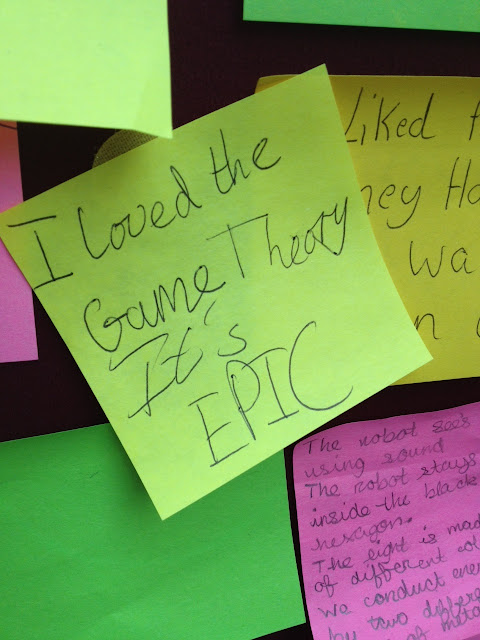 I loved the
Game Theory
It's
EPIC
Liked
wa
The robot sees
using sound
The robot stays
inside the black
hexagon.
The light is mad
of different col
We conduct ene
by two differe
of meta